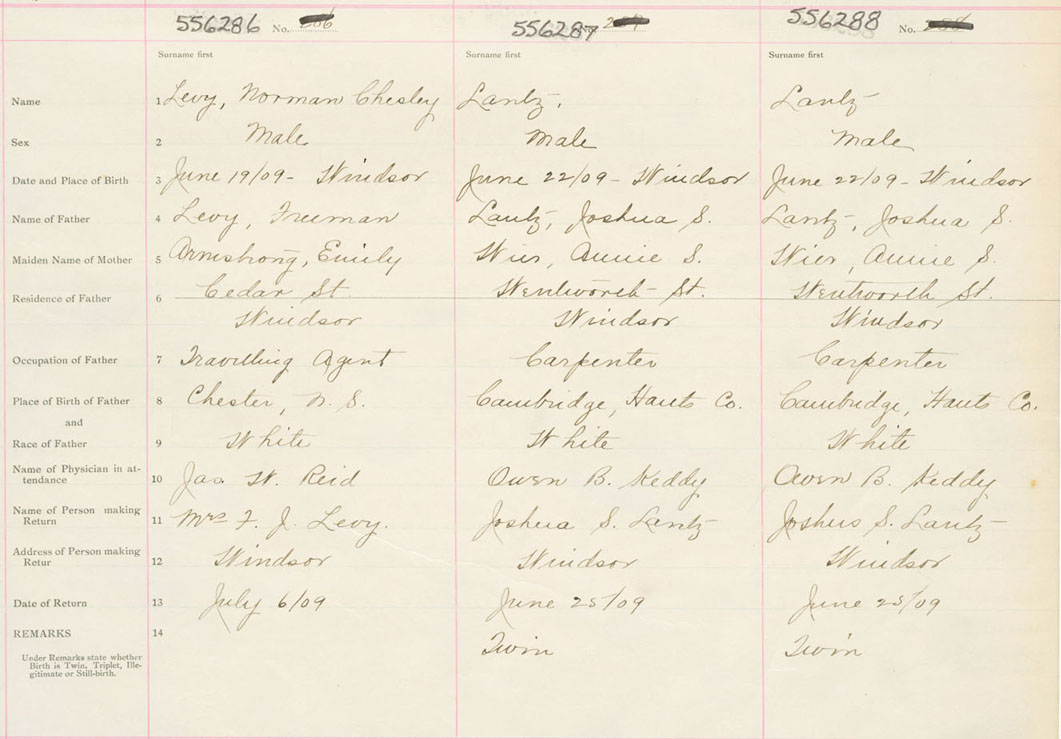 556286 No. 286 556287 No. 556288 No. 288
Surname first Surname first Surname first
Name 1 Levy, Norman Chesley Lantz, Lantz
Sex 2 Male Male Male
Date and Place of Birth 3 June 19/09 - Windsor June 22/09 - Windsor June 22/09 - Windsor
Name of Father 4 Levy, Freeman Lantz, Joshua S. Lantz, Joshua S.
Maiden Name of Mother 5 Armstrong, Emily Wier, Annie S. Wier, Annie S.
Residence of Father 6 Cedar St. Wentworth St. Wentworth St.
Windsor Windsor Windsor
Occupation of Father 7 Travelling Agent Carpenter Carpenter
Place of Birth of Father 8 Chester, N. S. Cambridge, Hants Co. Cambridge, Hants Co.
and
Race of Father 9 White White White
Name of Physician in at-
tendance 10 Jas. W. Reid Owen B. Keddy Owen B. Keddy
Name of Person making
Return 11 Mrs F. J. Levy. Joshua S. Lantz Joshua S. Lantz
Address of Person making
Retur 12 Windsor Windsor Windsor
Date of Return 13 July 6/09 June 25/09 June 25/09
REMARKS 14
Twin Twin
Under Remarks state whether
Birth is Twin, Triplet, Ille-
gitimate or Still-birth.